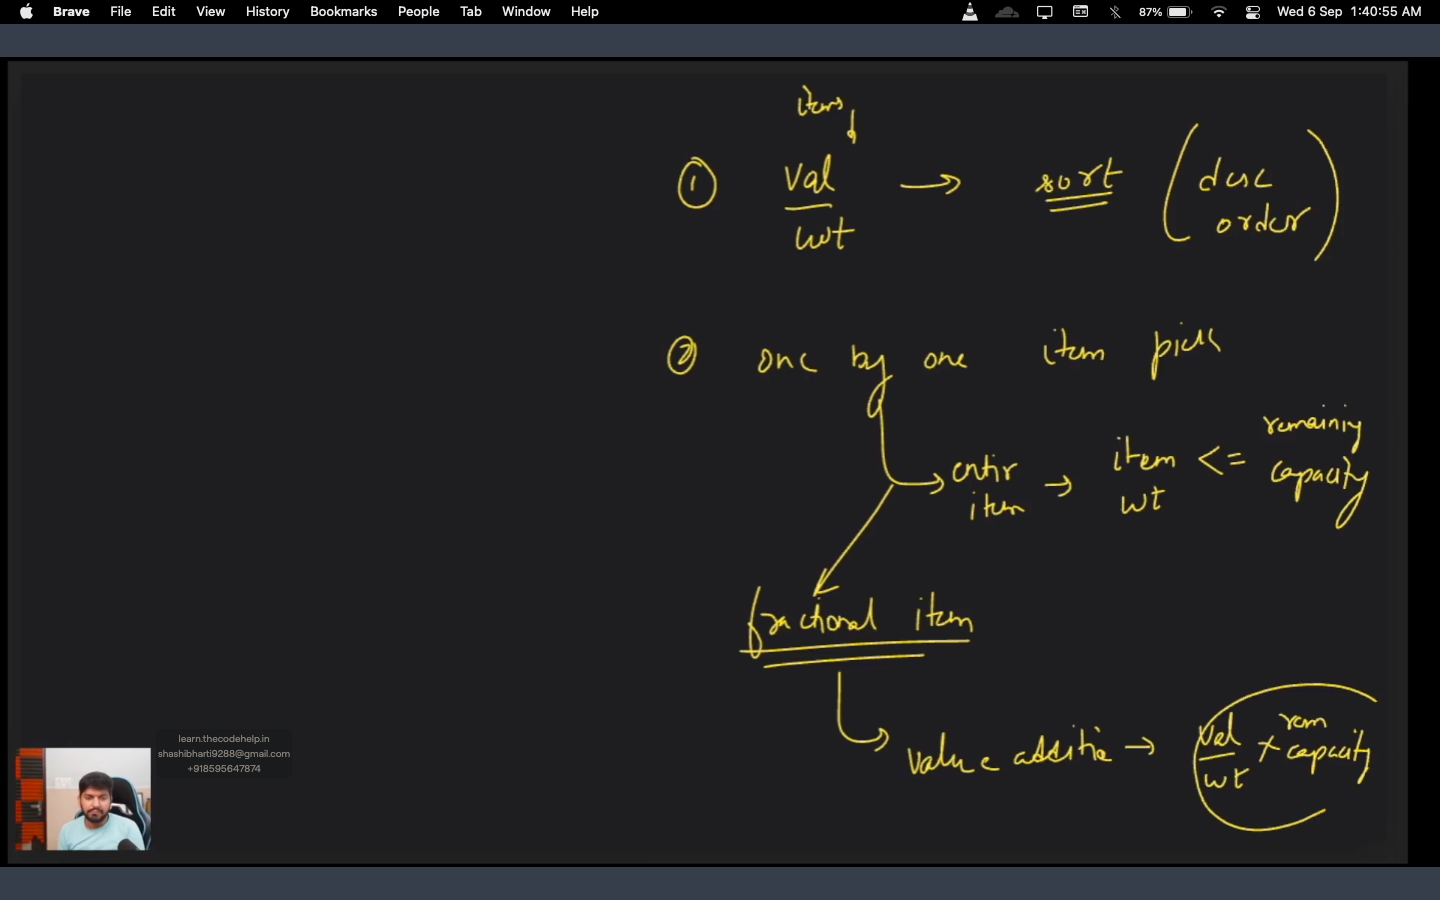 Brave File Edit View History Bookmarks People Tab Window Help 87% Wed 6 Sep 1:40:55 AM
items
① val → sort (desc
wt order)
② one by one item pick
entir → item <= remaining
item wt capacity
fractional item
value additio → val × rem
wt capacity
learn.thecodehelp.in
shashibharti9288@gmail.com
+918595647874